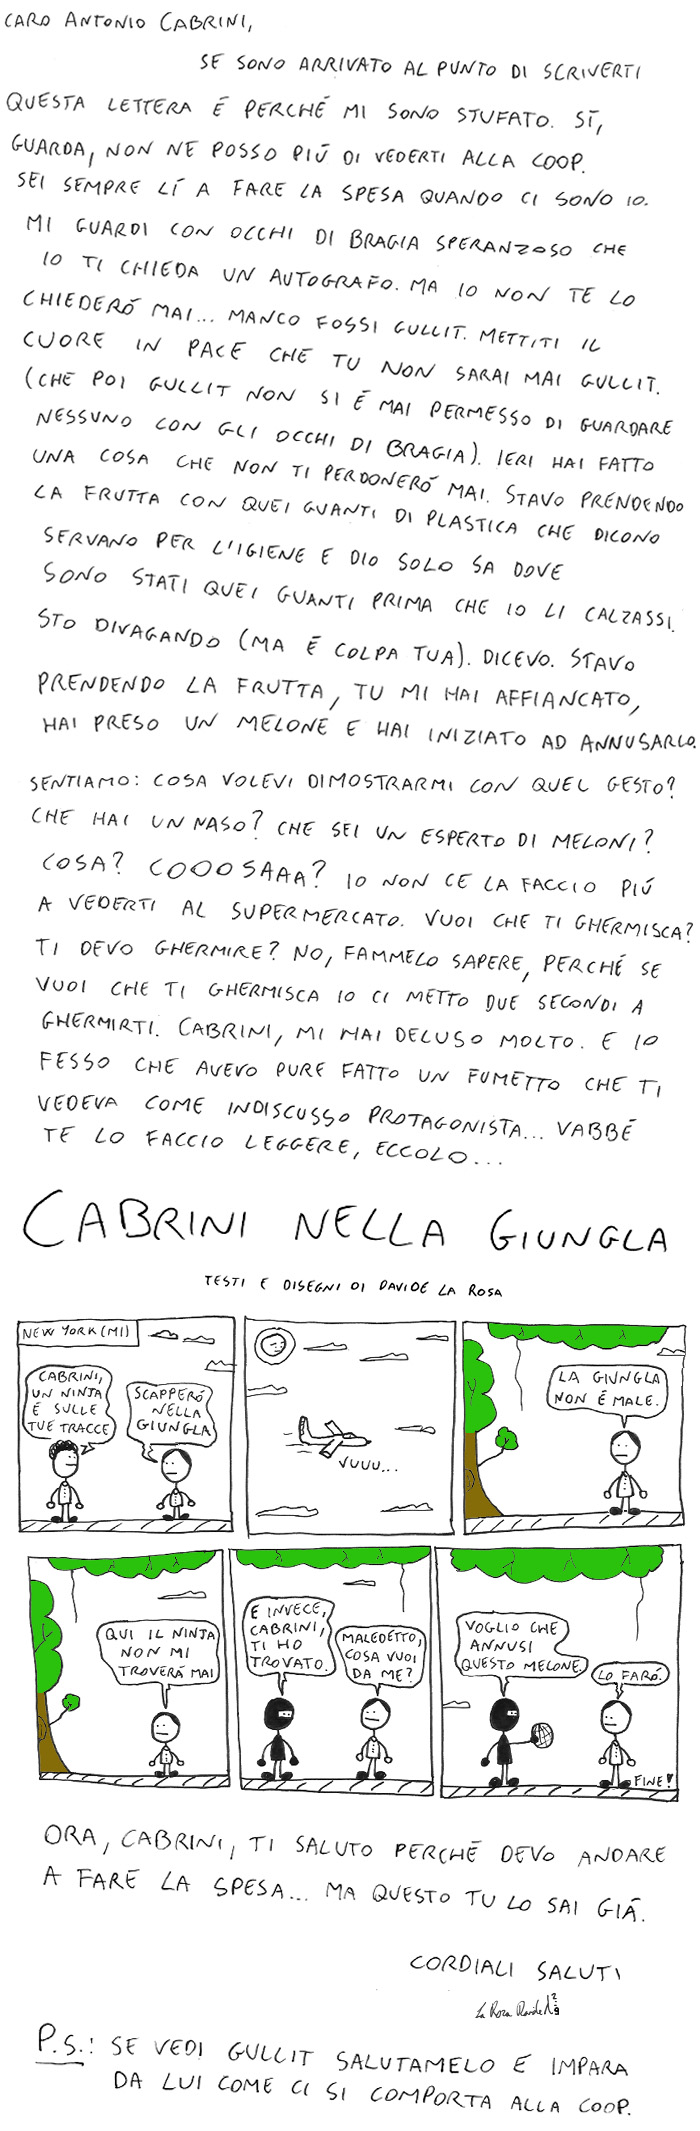 CARO ANTONIO CABRINI,
SE SONO ARRIVATO AL PUNTO DI SCRIVERTI
QUESTA LETTERA É PERCHÉ MI SONO STUFATO. SÍ,
GUARDA, NON NE POSSO PIÚ DI VEDERTI ALLA COOP.
SEI SEMPRE LÍ A FARE LA SPESA QUANDO CI SONO IO.
MI GUARDI CON OCCHI DI BRAGIA SPERANZOSO CHE
IO TI CHIEDA UN AUTOGRAFO. MA IO NON TE LO
CHIEDERÓ MAI... MANCO FOSSI GULLIT. METTITI IL
CUORE IN PACE CHE TU NON SARAI MAI GULLIT.
(CHE POI GULLIT NON SI É MAI PERMESSO DI GUARDARE
NESSUNO CON GLI OCCHI DI BRAGIA). IERI HAI FATTO
UNA COSA CHE NON TI PERDONERÓ MAI. STAVO PRENDENDO
LA FRUTTA CON QUEI GUANTI DI PLASTICA CHE DICONO
SERVANO PER L'IGIENE E DIO SOLO SA DOVE
SONO STATI QUEI GUANTI PRIMA CHE IO LI CALZASSI.
STO DIVAGANDO (MA É COLPA TUA). DICEVO. STAVO
PRENDENDO LA FRUTTA, TU MI HAI AFFIANCATO,
HAI PRESO UN MELONE E HAI INIZIATO AD ANNUSARLO.
SENTIAMO: COSA VOLEVI DIMOSTRARMI CON QUEL GESTO?
CHE HAI UN NASO? CHE SEI UN ESPERTO DI MELONI?
COSA? COOOSAAA? IO NON CE LA FACCIO PIÚ
A VEDERTI AL SUPERMERCATO. VUOI CHE TI GHERMISCA?
TI DEVO GHERMIRE? NO, FAMMELO SAPERE, PERCHÉ SE
VUOI CHE TI GHERMISCA IO CI METTO DUE SECONDI A
GHERMIRTI. CABRINI, MI HAI DELUSO MOLTO. E IO
FESSO CHE AVEVO PURE FATTO UN FUMETTO CHE TI
VEDEVA COME INDISCUSSO PROTAGONISTA... VABBÉ
TE LO FACCIO LEGGERE, ECCOLO...
CABRINI NELLA GIUNGLA
TESTI E DISEGNI DI DAVIDE LA ROSA
NEW YORK (MI)
CABRINI,
UN NINJA
É SULLE
TUE TRACCE
SCAPPERÓ
NELLA
GIUNGLA
VUUU...
LA GIUNGLA
NON É MALE.
QUI IL NINJA
NON MI
TROVERÁ MAI
E INVECE,
CABRINI,
TI HO
TROVATO.
MALEDETTO,
COSA VUOI
DA ME?
VOGLIO CHE
ANNUSI
QUESTO MELONE.
LO FARÓ.
FINE!
ORA, CABRINI, TI SALUTO PERCHÉ DEVO ANDARE
A FARE LA SPESA... MA QUESTO TU LO SAI GIÁ.
CORDIALI SALUTI
La Rosa Davide
P.S.: SE VEDI GULLIT SALUTAMELO E IMPARA
DA LUI COME CI SI COMPORTA ALLA COOP.